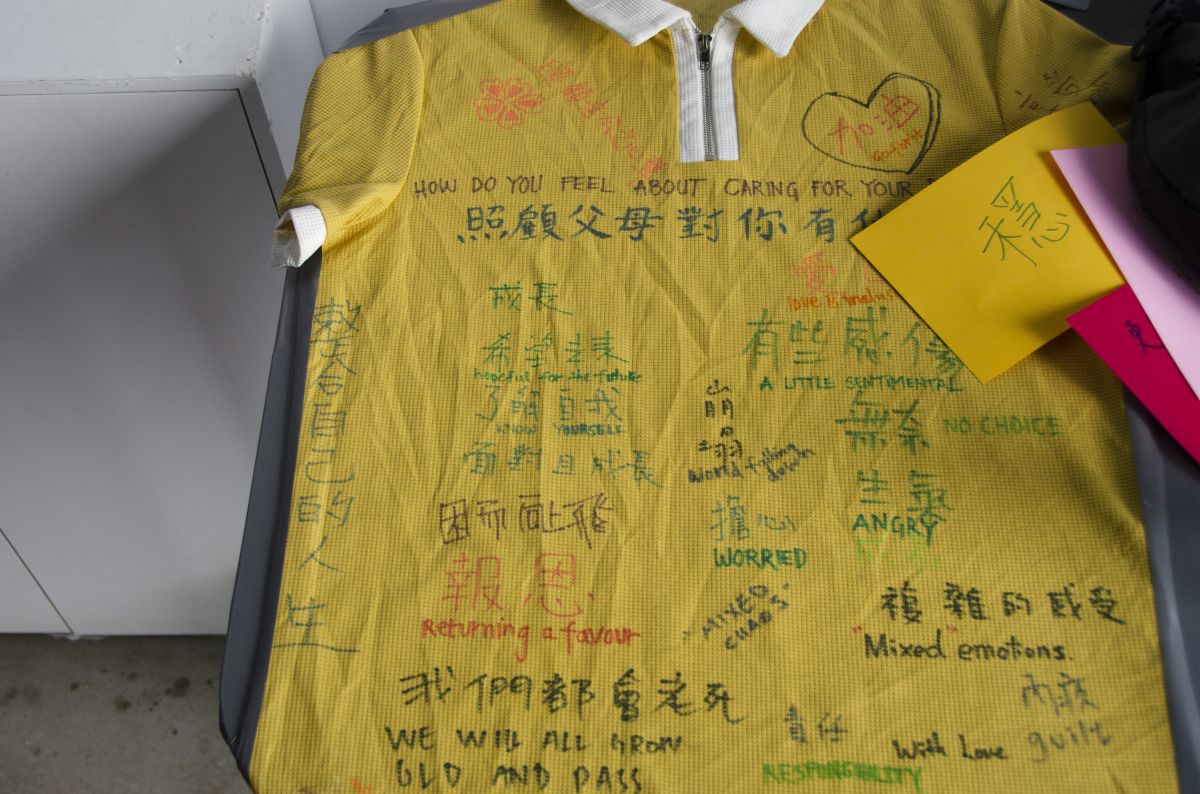 加油
Go for it
HOW DO YOU FEEL ABOUT CARING FOR YOUR
照顧父母對你有
穩
愛
love is
成長
有些感傷
A LITTLE SENTIMENTAL
hopeful for the future
了解自我
KNOW YOURSELF
崩塌
World falling down
無奈 NO CHOICE
面對且成長
整合自己的人生
生氣
ANGRY
擔心
WORRIED
報恩
Returning a favour
MIXED
CHAOS
複雜的感受
"Mixed" emotions.
我們都會老死
WE WILL ALL GROW
OLD AND PASS
內疚
guilt
責任
RESPONSIBILITY
With Love